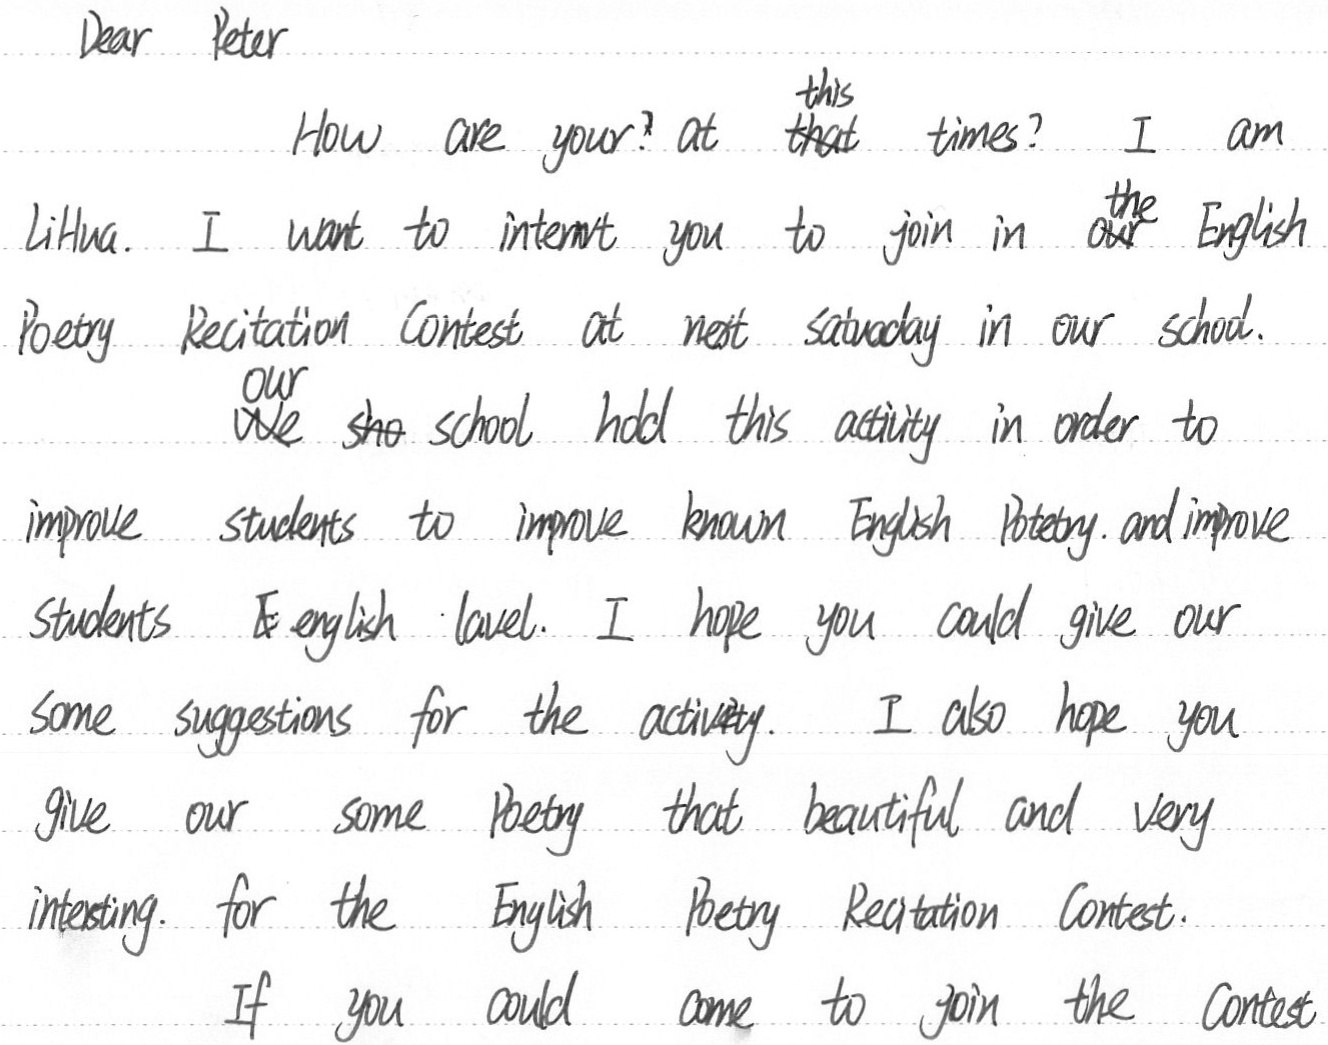 Dear Peter
How are your? at this times? I am
LiHua. I want to internt you to join in the English
Poetry Recitation Contest at next satuaday in our school.
our school hold this activity in order to
improve students to improve known English Potetry. and improve
students english lavel. I hope you could give our
some suggestions for the activity. I also hope you
give our some Poetry that beautiful and very
intersting. for the English Poetry Recitation Contest.
If you could come to join the Contest